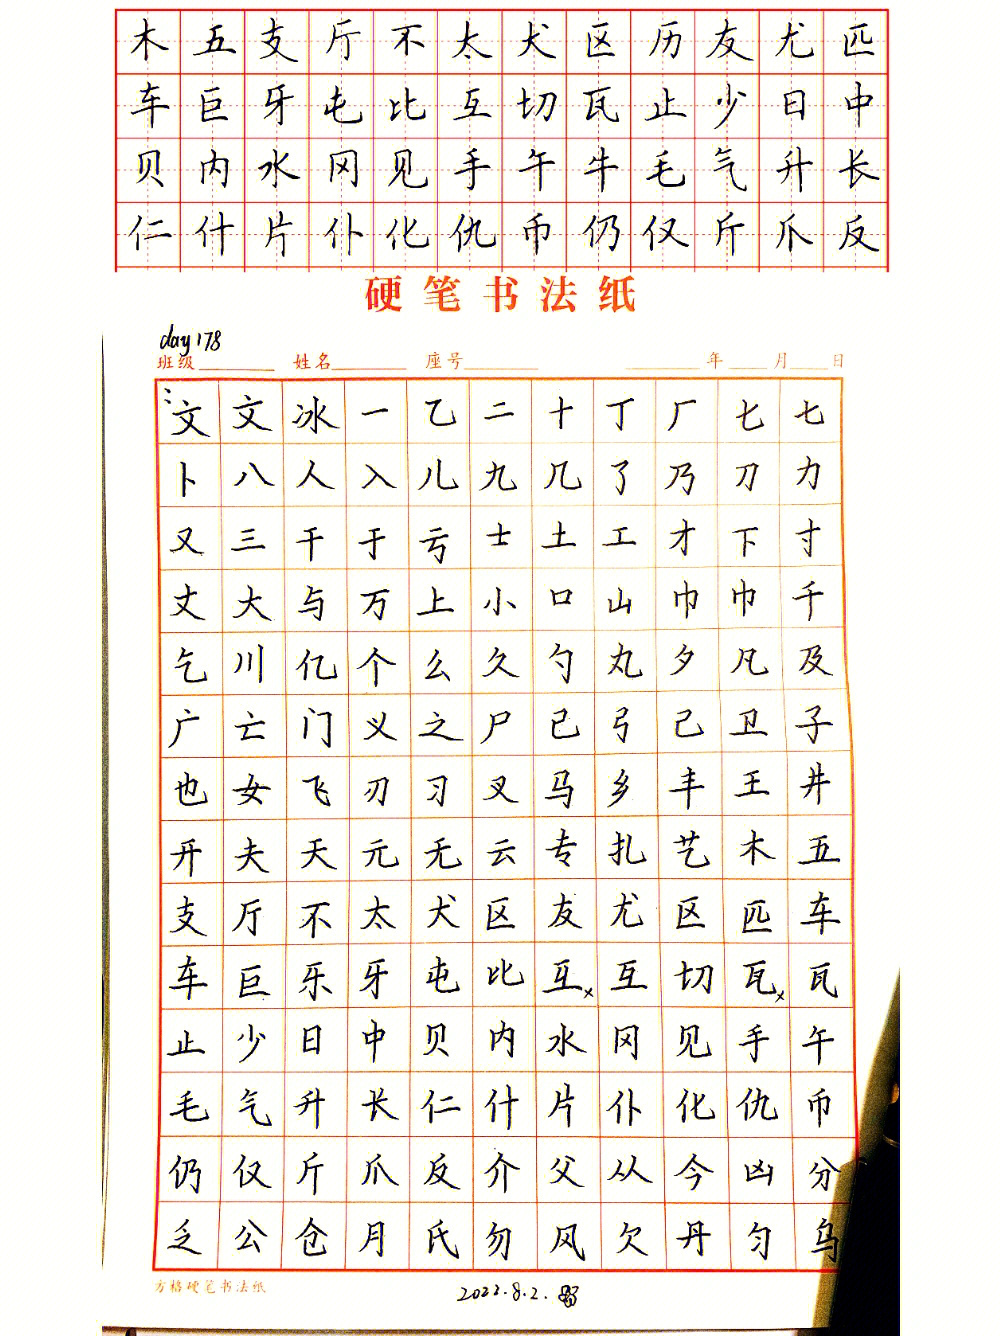 木五支斤不太犬区历友尤匹
车巨牙屯比互切瓦止少日中
贝内水冈见手午牛毛气升长
仁什片仆化仇币仍仅斤爪反
硬笔书法纸
day 178
班级 姓名 座号 年 月 日
文文冰一乙二十丁厂七七
卜八人入儿九几了乃刀力
又三干于亏士土工才下寸
丈大与万上小口山巾巾千
乞川亿个么久勺丸夕凡及
广亡门义之尸已弓己卫子
也女飞刃习叉马乡丰王井
开夫天元无云专扎艺木五
支厅不太犬区友尤区匹车
车巨乐牙屯比互x互切瓦x瓦
止少日中贝内水冈见手午
毛气升长仁什片仆化仇币
仍仅斤爪反介父从今凶分
乏公仓月氏勿风欠丹匀乌
方格硬笔书法纸
2022.8.2.